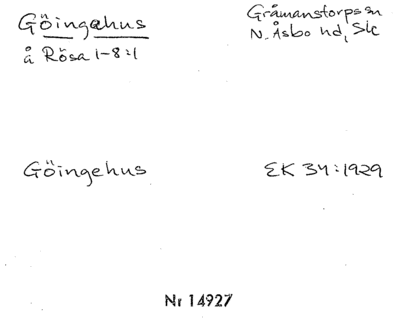 Göingehus
å Rösa 1-8:1
Gråmanstorps sn
N. Åsbo hd, Slc
Göingehus
EK 34:1929
Nr 14927